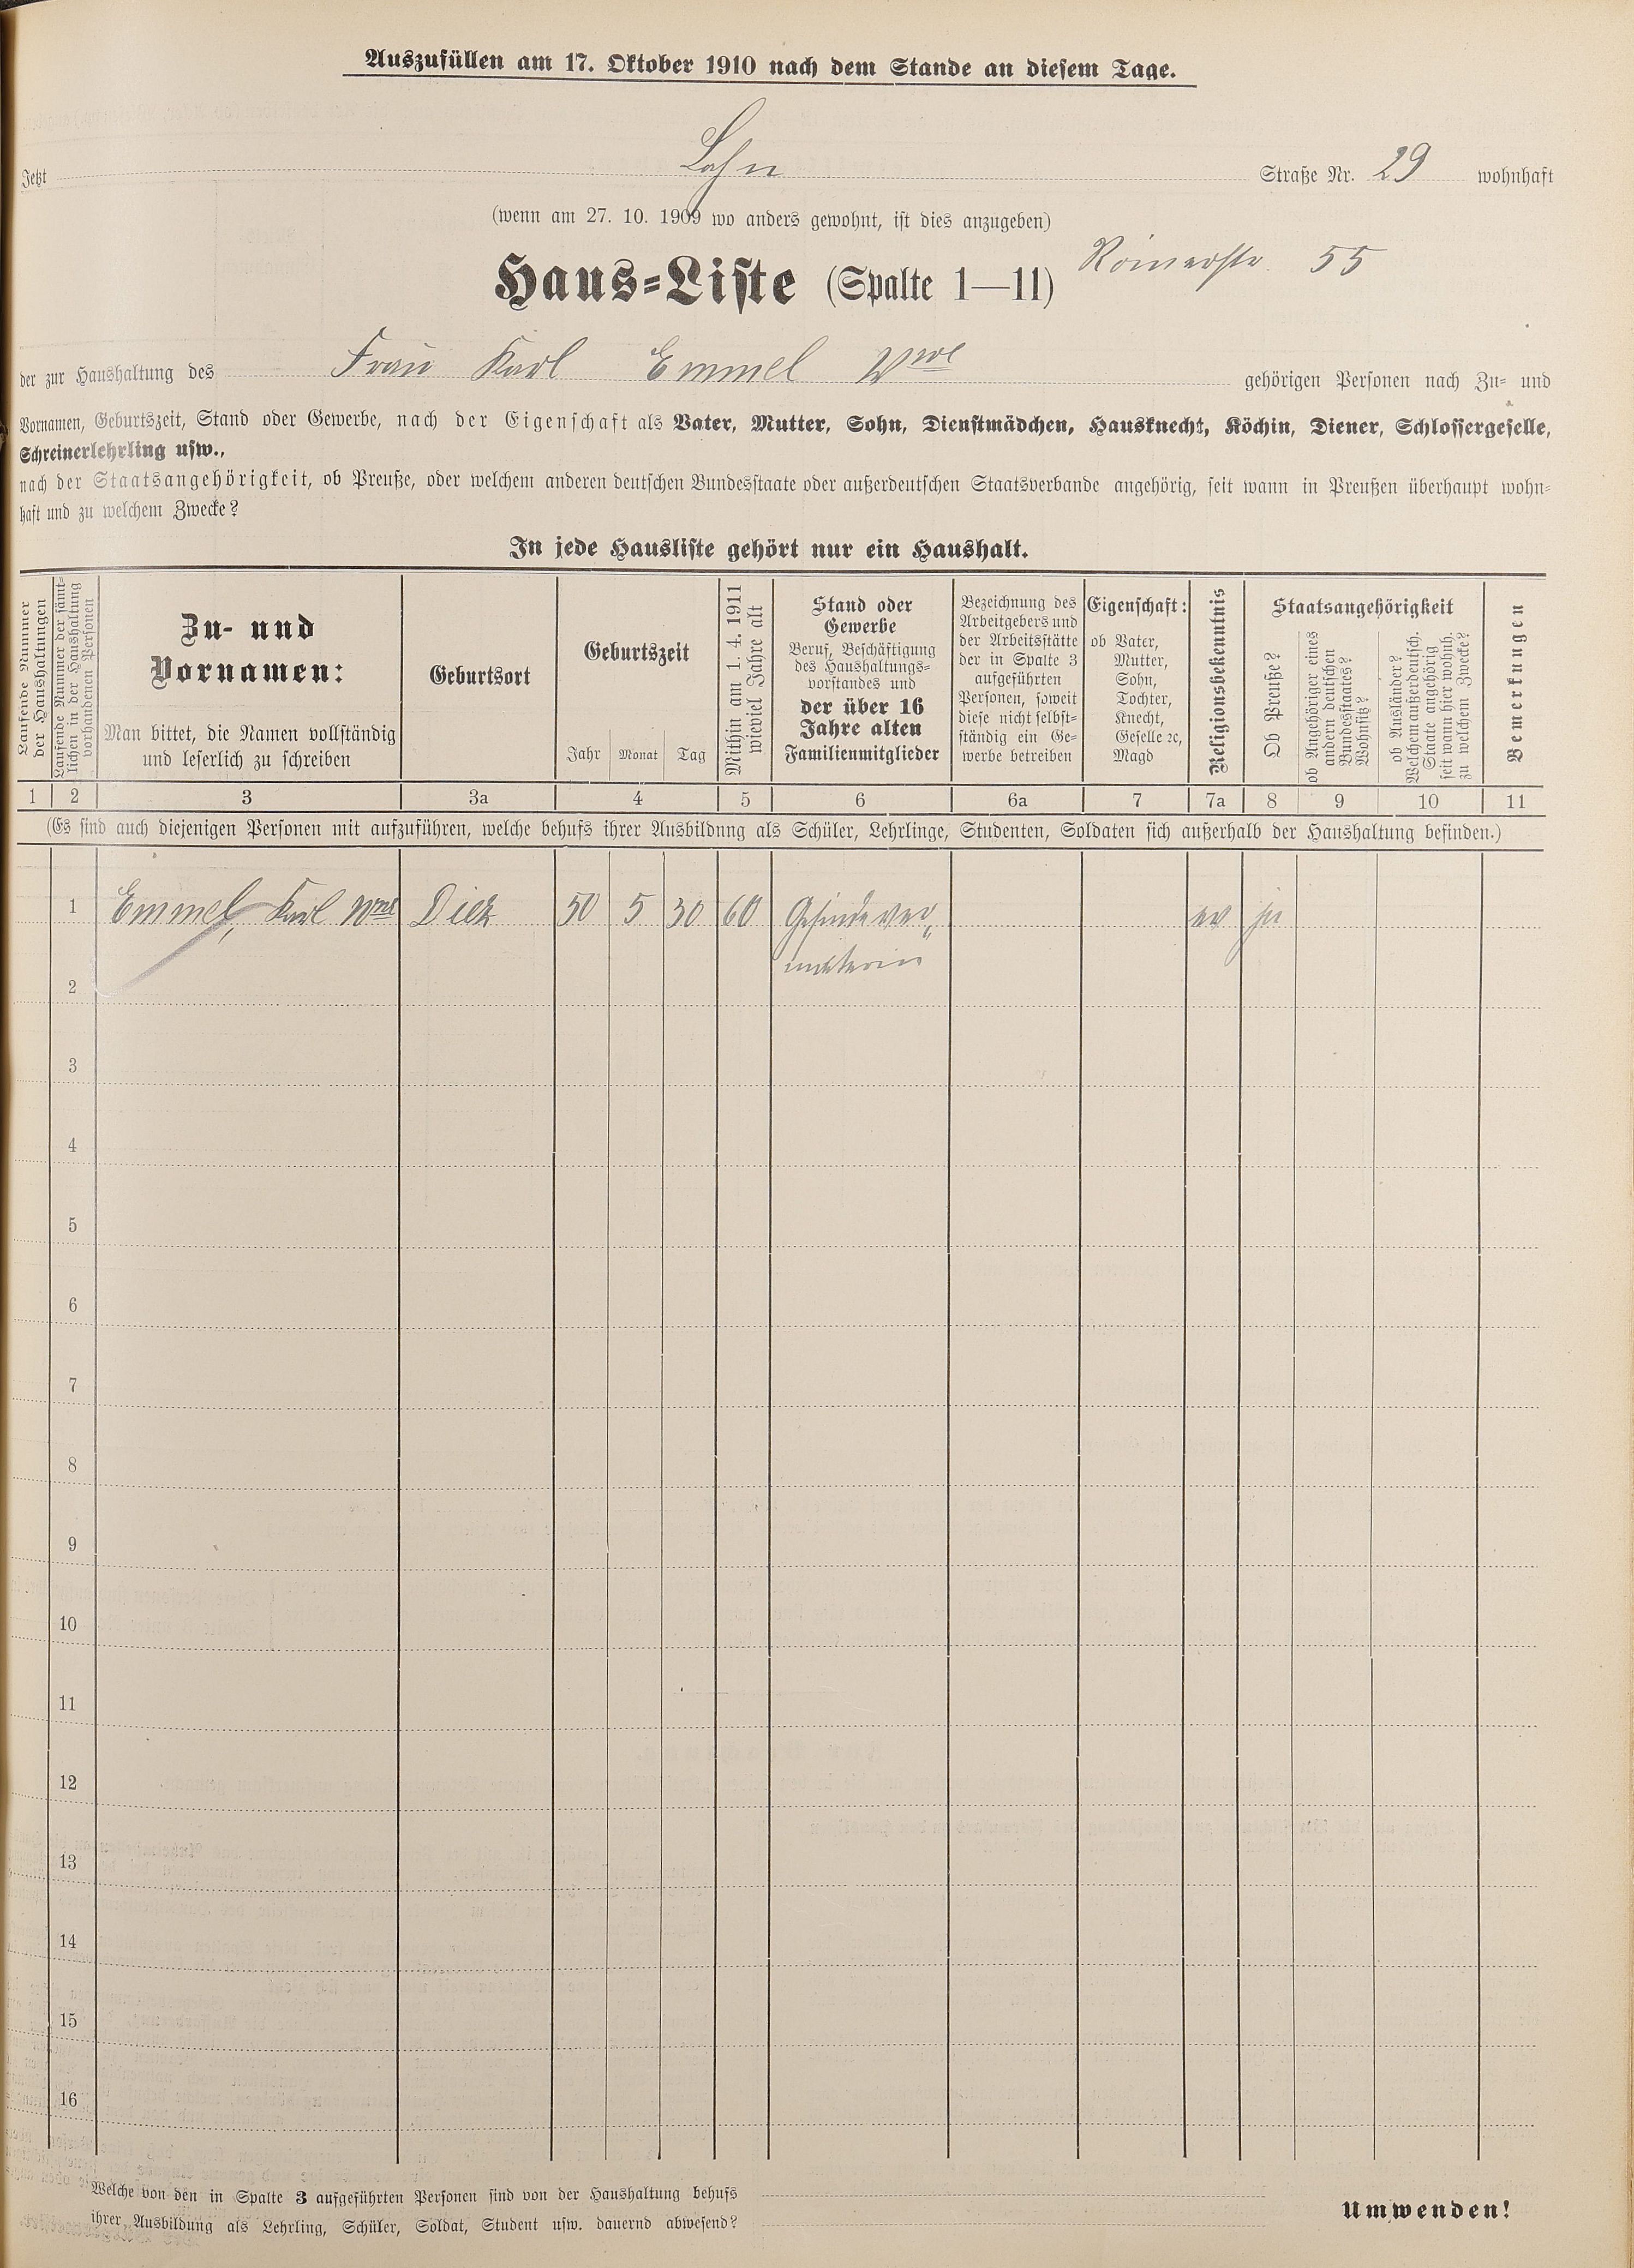 Auszufüllen am 17. Oktober 1910 nach dem Stande an diesem Tage.
Jetzt Lahn Straße Nr. 29 wohnhaft
(wenn am 27. 10. 1909 wo anders gewohnt, ist dies anzugeben)
Römerstr. 55
Haus=Liste (Spalte 1—11)
der zur Haushaltung des Frau Karl Emmel Wwe gehörigen Personen nach Zu= und
Vornamen, Geburtszeit, Stand oder Gewerbe, nach der Eigenschaft als Vater, Mutter, Sohn, Dienstmädchen, Hausknecht, Köchin, Diener, Schlossergeselle,
Schreinerlehrling usw.,
nach der Staatsangehörigkeit, ob Preuße, oder welchem anderen deutschen Bundesstaate oder außerdeutschen Staatsverbande angehörig, seit wann in Preußen überhaupt wohn=
haft und zu welchem Zwecke?
In jede Hausliste gehört nur ein Haushalt.
Laufende Nummer
der Haushaltungen
Laufende Nummer der sämt=
lichen in der Haushaltung
vorhandenen Personen
Zu- und
Vornamen:
Man bittet, die Namen vollständig
und leserlich zu schreiben
Geburtsort
Geburtszeit
Jahr Monat Tag
Mithin am 1. 4. 1911
wieviel Jahre alt
Stand oder
Gewerbe
Beruf, Beschäftigung
des Haushaltungs=
vorstandes und
der über 16
Jahre alten
Familienmitglieder
Bezeichnung des
Arbeitgebers und
der Arbeitsstätte
der in Spalte 3
aufgeführten
Personen, soweit
diese nicht selbst=
ständig ein Ge=
werbe betreiben
Eigenschaft:
ob Vater,
Mutter,
Sohn,
Tochter,
Knecht,
Geselle ꝛc,
Magd
Religionsbekenntnis
Staatsangehörigkeit
Ob Preuße?
ob Angehöriger eines
andern deutschen
Bundesstaates?
Wohnsitz?
ob Ausländer?
Welchem außerdeutsch.
Staate angehörig
seit wann hier wohnh.
zu welchem Zwecke?
Bemerkungen
1 2 3 3a 4 5 6 6a 7 7a 8 9 10 11
(Es sind auch diejenigen Personen mit aufzuführen, welche behufs ihrer Ausbildung als Schüler, Lehrlinge, Studenten, Soldaten sich außerhalb der Haushaltung befinden.)
1 Emmel, Karl Wwe Diez 50 5 30 60 Gesindever= ev ja
mieterin
2
3
4
5
6
7
8
9
10
11
12
13
14
15
16
Welche von den in Spalte 3 aufgeführten Personen sind von der Haushaltung behufs
ihrer Ausbildung als Lehrling, Schüler, Soldat, Student usw. dauernd abwesend?
Umwenden!